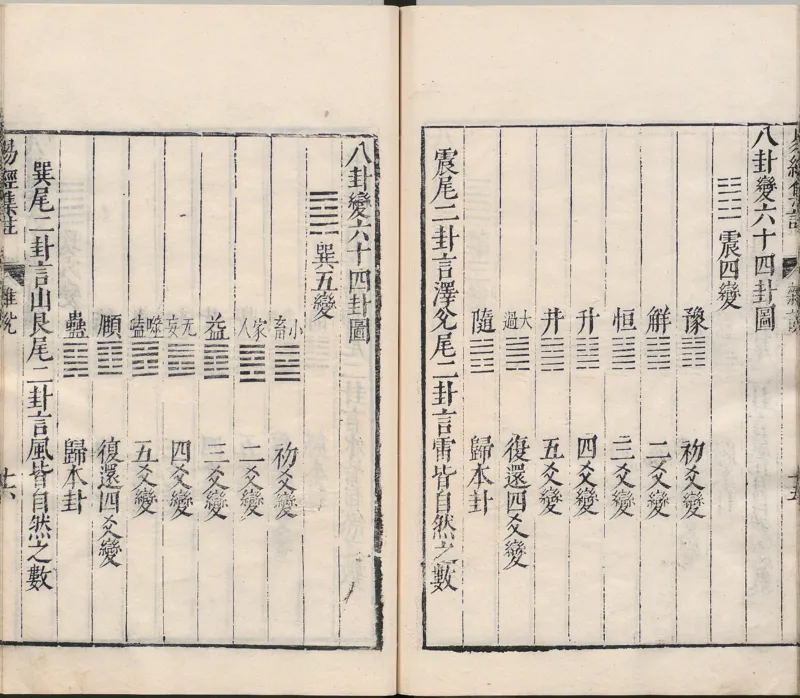 易經集註 雜說 十五
八卦變六十四卦圖
震四變
豫 初爻變
解 二爻變
恒 三爻變
升 四爻變
井 五爻變
大過 復還四爻變
隨 歸本卦
震尾二卦言澤兌尾二卦言雷皆自然之數
八卦變六十四卦圖
巽五變
小畜 初爻變
家人 二爻變
益 三爻變
无妄 四爻變
噬嗑 五爻變
頤 復還四爻變
蠱 歸本卦
巽尾二卦言山艮尾二卦言風皆自然之數
易經集註 雜說 十六